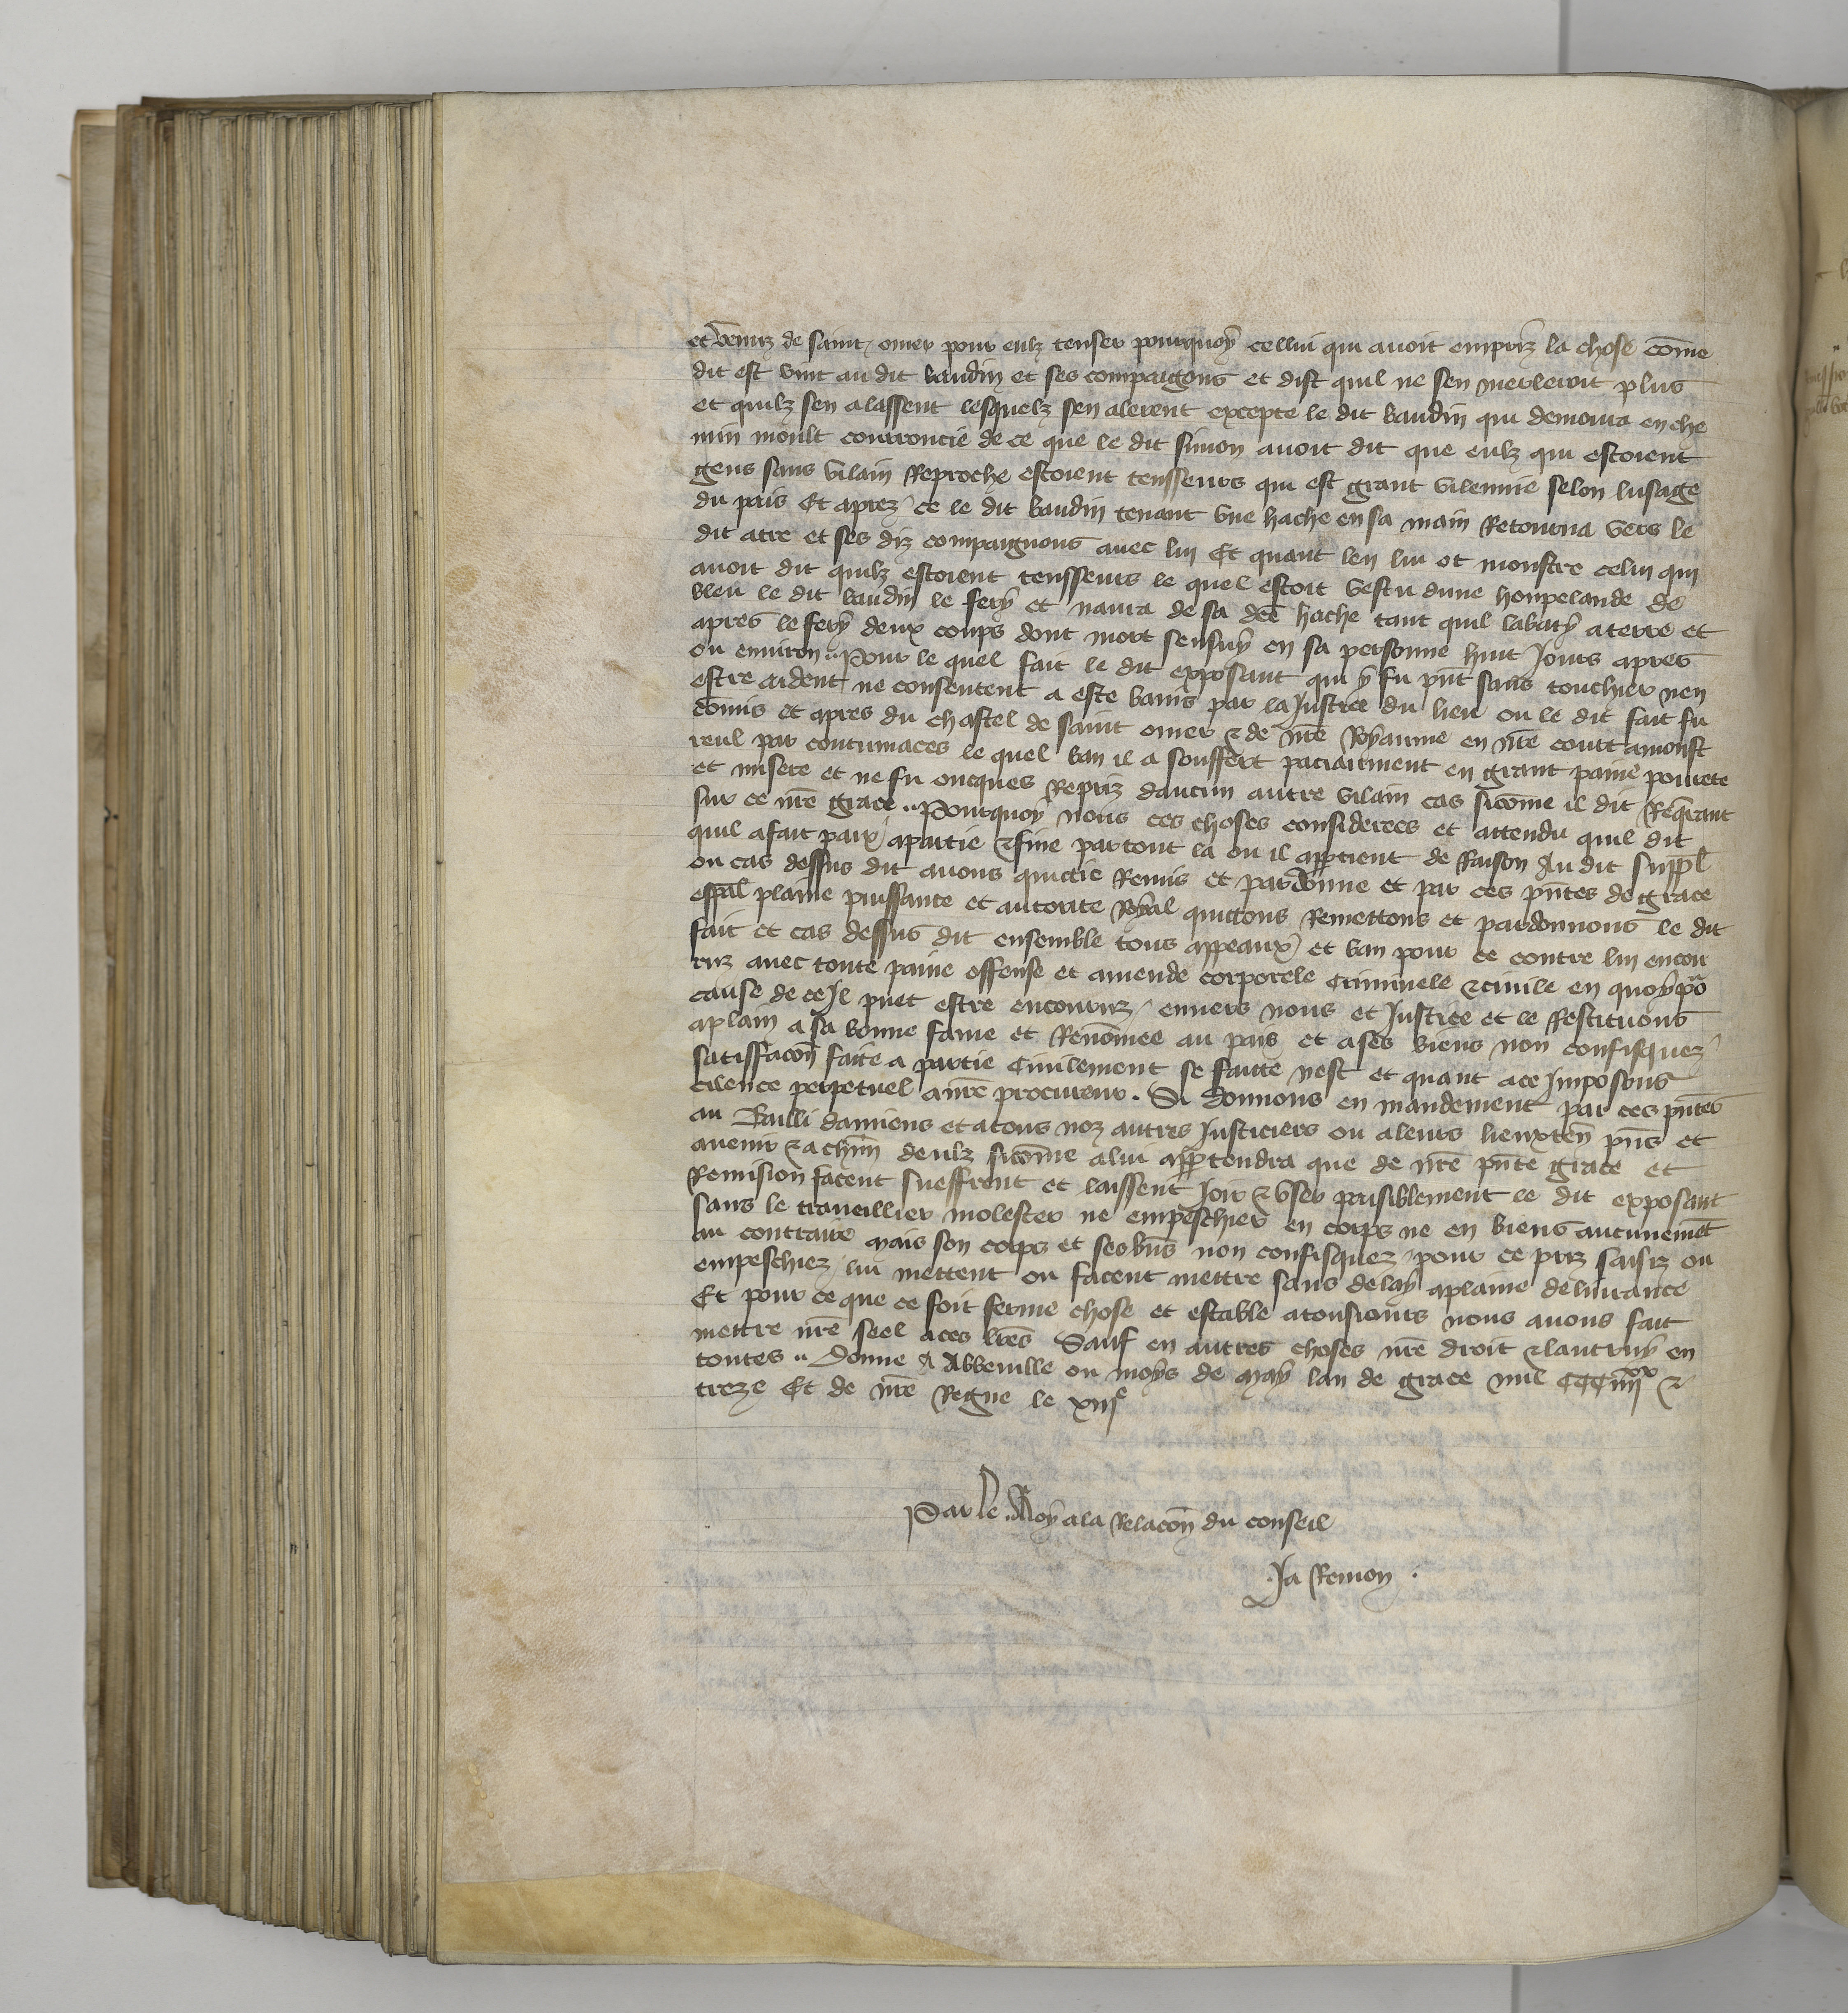 et venuz de saint omer pour eulz tenser pourquoy cellui qui avoit empriz la chose cōme
dit est vint au dit baudin et ses compaignons et dist quil ne sen mesleroit plus
et quilz sen alassent lesquelz sen alerent excepte le dit baudin qui demoura en che
min moult courroucie de ce que le dit simon avoit dit que eulz qui estoient
gens sans vilain Reproche estoient tensseurs qui est grant vilennie selon lusage
du pais Et aprez ce le dit baudin tenant vne hache en sa main Retourna vers le
dit atre et ses diz compaignons avec lui Et quant len lui ot monstre celui qui
avoit dit quilz estoient tensseurs le quel estoit vestu dune houpelande de
bleu le dit baudin le fery et navra de sa dcē hache tant quil labaty a terre et
apres le fery deux coups dont mort sensuy en sa personne huit Jours apres
ou environ .. Pour le quel fait le dit exposant qui y fu pn̄t sans touchier nen
estre aident ne consentent a este banis par la Justice du lieu ou le dit fait fu
cōmis et apres du chastel de saint omer & de nr̄e Royaume en nr̄e court a monst
reul par contumaces le quel ban il a souffert paciaument en grant paine povrete
et misere et ne fu oncques Repriz daucun autre vilain cas sicōme il dit Req̄rant
sur ce nr̄e grace .. Pourquoy nous ces choses considerees et attendu quil dit
quil a fait paix a partie & fine partout la ou il app̱tient de Raison Au dit suppl̄
ou cas dessus dit avons quictie Remis et pardonne et par ces pn̄tes de grace
esp̄al plaine puissance et autorite Royal quictons Remettons et pardonnons le dit
fait et cas dessus dit ensemble tous appeaux et ban pour ce contre lui encou
ruz avec toute paine offense et amende corporele Criminele & civile en quoy po^r
cause de ce Il puet estre encouruz envers nous et Justice et le Restituons
a plain a sa bonne fame et Renōmee au pais et a ses biens non confisquez
satisfacōn faite a partie Civilement se faitte nest et quant a ce Imposons
cilence perpetuel a nr̄e procureur . Si donnons en mandement par ces pn̄tes
au Bailli damiens et a tous noz autres Justiciers ou a leurs lieuxten̄ pn̄s et
avenir & a chūn deulz sicōme a lui app̱tendra que de nr̄e pn̄te grace et
Remision facent sueffrent et laissent Joir & vser paisiblement le dit exposant
sans le traveillier molester ne empeschier en corps ne en biens aucunemēt
au contraire mais son corps et ses bn̄s non confisquez pour ce priz saisiz ou
empeschiez lui mettent ou facent mettre sans delay a plaine delivrance
Et pour ce que ce soit ferme chose et estable a tousiours nous avons fait
mettre nr̄e seel a ces lr̄es Sauf en autres choses nr̄e droit & lautruy en
toutes .. Donne A Abbeville ou moys de may lan de grace mil CCC iiij^xx &
treze Et de nr̄e Regne le xiij^e
Par le Roy a la Relacōn du conseil
Ja Remon .